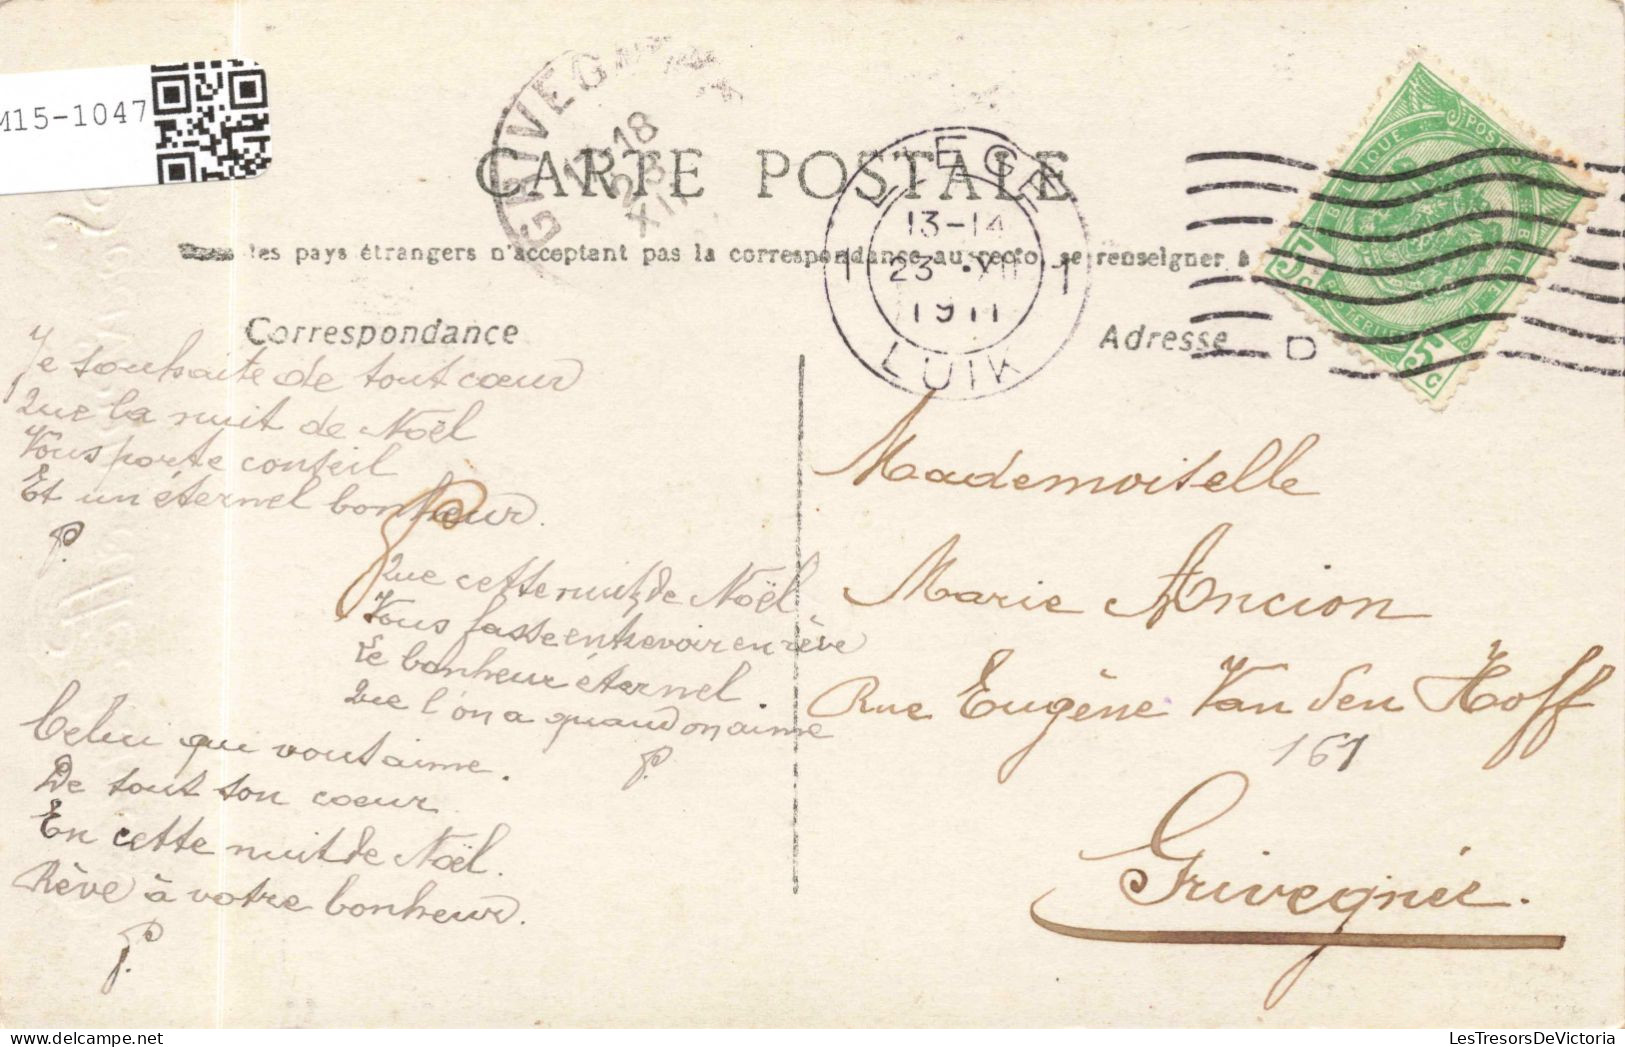 M15-1047
GRIVEGNÉE
17-18
23
XII
CARTE POSTALE
LIEGE
13-14
1 23 XII 1
1911
LUIK
D
BELGIQUE POSTERIJEN BELGIE POSTES
5c
5c
les pays étrangers n'acceptent pas la correspondance au recto, se renseigner à
Correspondance
Adresse
Je souhaite de tout cœur
Que la nuit de Noël
Vous porte conseil
Et un éternel bonheur.
P.
Que cette nuit de Noël
Vous fasse entrevoir en rêve
Le bonheur éternel
Que l'on a quand on aime
P.
Celui qui vous aime.
De tout son coeur
En cette nuit de Noël.
Rêve à votre bonheur.
P.
Mademoiselle
Marie Ancion
Rue Eugène Van den Hoff
161
Grivegnée.
LesTresorsDeVictoria